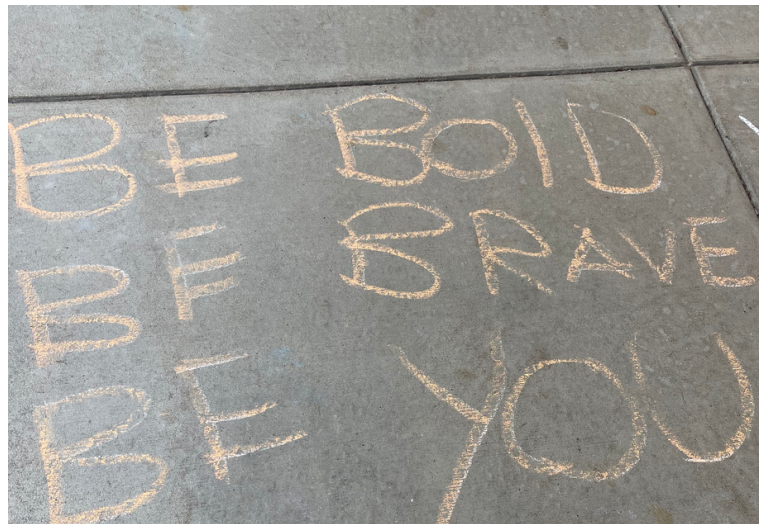 BE BOlD
BE BRAVE
BE YOU